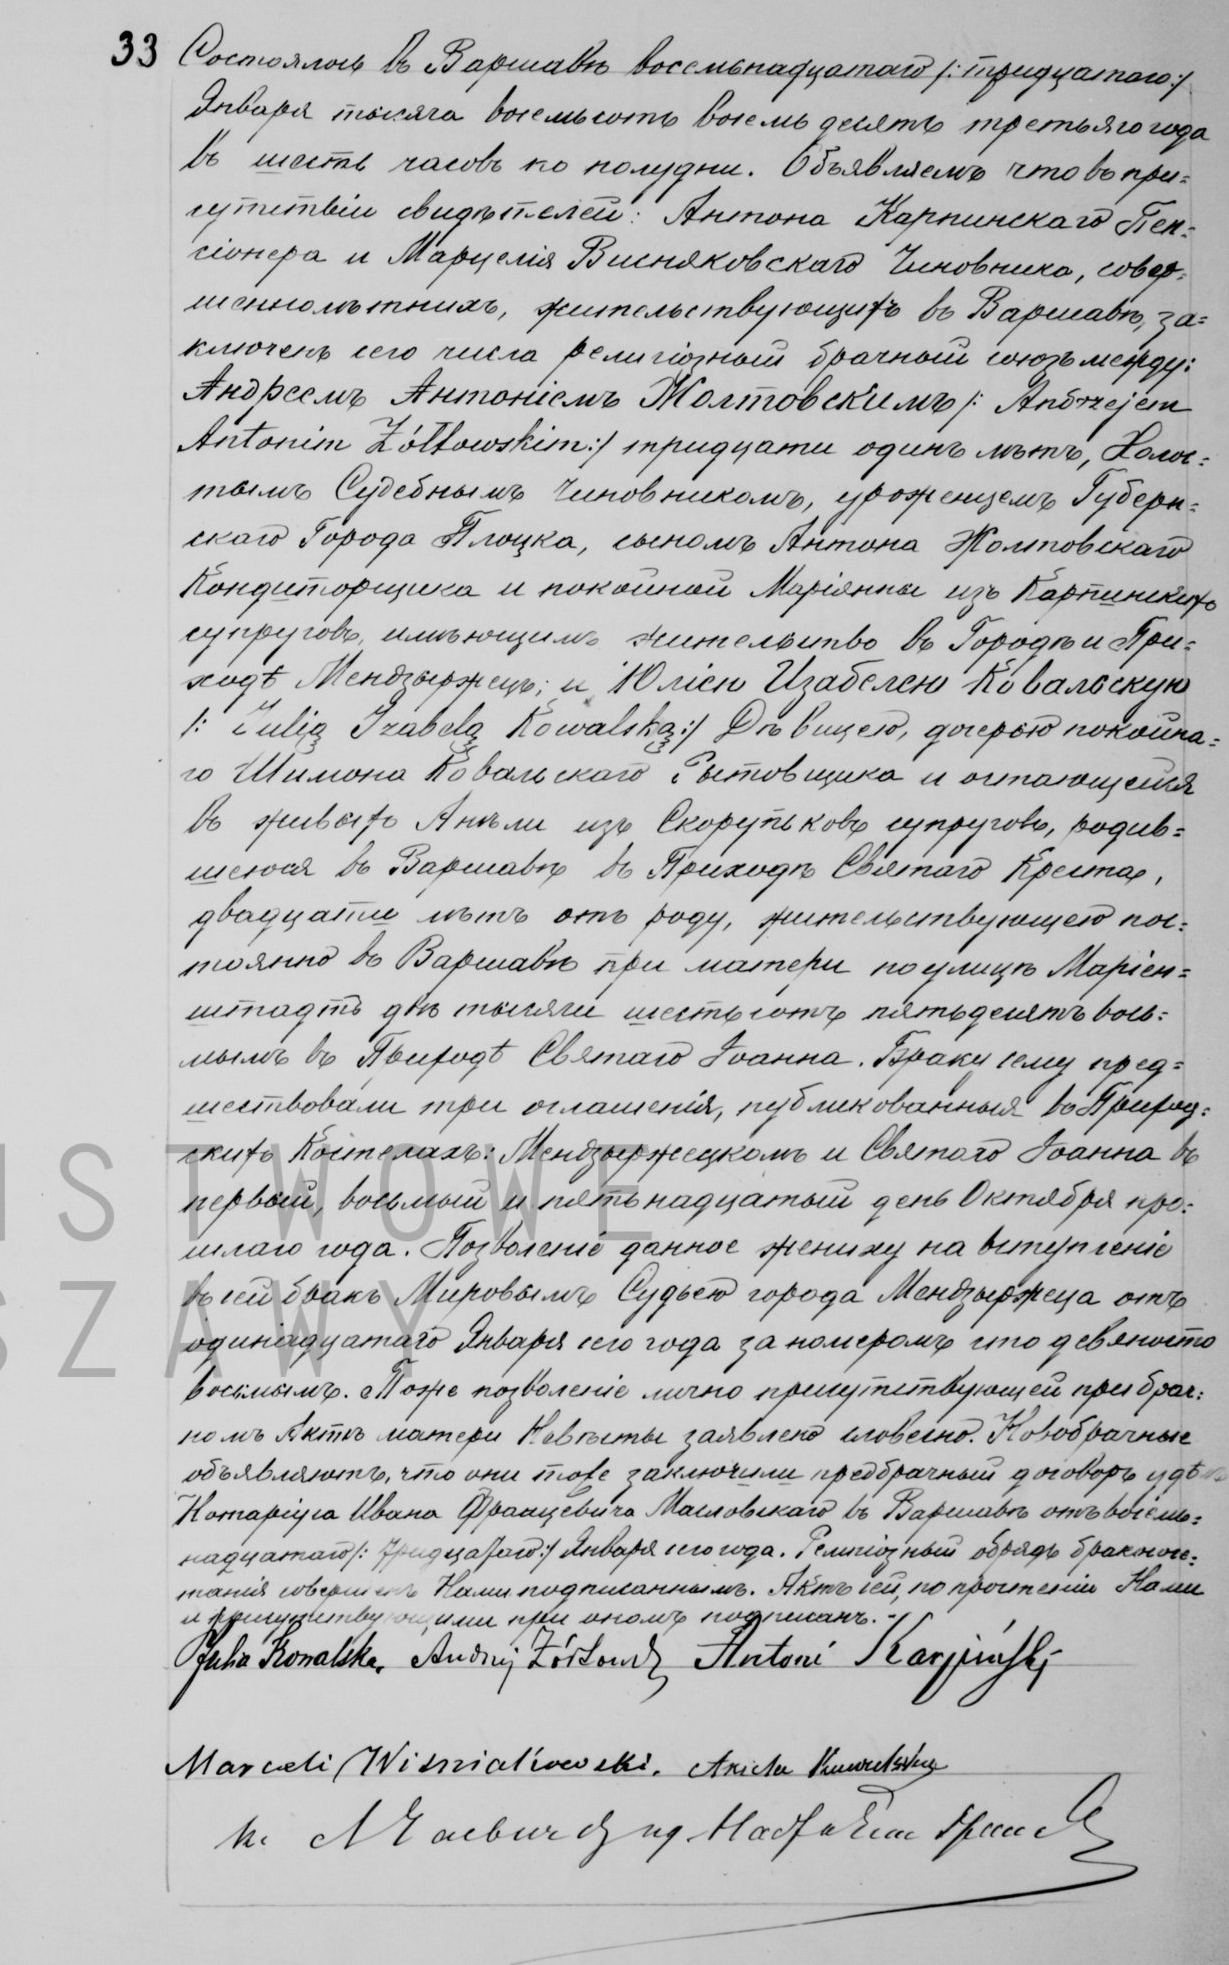 33 Состоялось въ Варшавѣ восемьнадцатаго /: тридцатаго:/
Января тысяча восемьсотъ восемь десятъ третьяго года
въ шесть часовъ по полудни. Объявляемъ что въ при=
сутствіи свидѣтелей: Антона Карпинскаго Пен=
сіонера и Марцелія Висняковскаго Чиновника, совер=
шеннолѣтнихъ, жительствующихъ въ Варшавѣ, за=
ключенъ сего числа религіозный брачный союзъ между:
Андреемъ Антоніемъ Жолтовскимъ /: Andrzejem
Antonim Żółtowskim:/ тридцати одинъ лѣтъ, Холос=
тымъ Судебнымъ Чиновникомъ, уроженцемъ Губерн=
скаго Города Плоцка, сыномъ Антона Жолтовскаго
Кондиторщика и покойной Маріянны изъ Карпинскихъ
супруговъ, имѣющимъ жительство въ Городѣ и При=
ходѣ Мендзыржецъ; и Юліею Изабелею Ковальскую
/: Julią Izabelą Kowalską:/ Дѣвицею, дочерью покойна=
го Шимона Ковальскаго Рытовщика и остающейся
въ живыхъ Анѣли изъ Скорупковъ супруговъ, родив=
шеюся въ Варшавѣ въ Приходѣ Святаго Креста,
двадцати лѣтъ отъ роду, жительствующею пос=
тоянно въ Варшавѣ при матери по улицѣ Маріен=
штадтъ двѣ тысячи шестьсотъ пятьдесятъ вось=
мымъ въ Приходѣ Святаго Іоанна. Браку сему пред=
шествовали три оглашенія, публикованныя въ Приход=
скихъ Костелахъ: Мендзыржецкомъ и Святаго Іоанна въ
первый, восьмый и пятьнадцатый день Октября про=
шлаго года. Позволеніе данное жениху на вступленіе
въ сей бракъ Мировымъ Судьею города Мендзыржеца отъ
одинадцатаго Января сего года за номеромъ сто девяносто
восьмымъ. Тоже позволеніе лично присутствующей при брач=
номъ Актѣ матери Невѣсты заявлено словесно. Новобрачные
объявляютъ, что они тоже заключили предбрачный договоръ у
Нотаріуса Ивана Францевича Масловскаго въ Варшавѣ отъ восемь=
надцатаго /: тридцатаго:/ Января сего года. Религіозный обрядъ бракосоче=
танія совершенъ Нами подписаннымъ. Актъ сей, по прочтеніи Нами
и присутствующими при ономъ подписанъ. -
Julia Kowalska, Andrzej Żółtowski Antoni Karpiński
Marceli Wiśniakowski. Aniela Kowalska
ISTWOWE
SZAWY